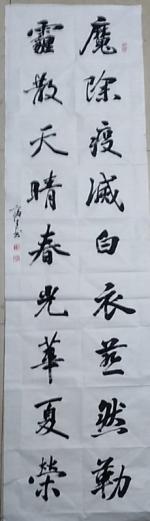 魔除疫滅白衣燕然勒
霾散天晴春光華夏榮